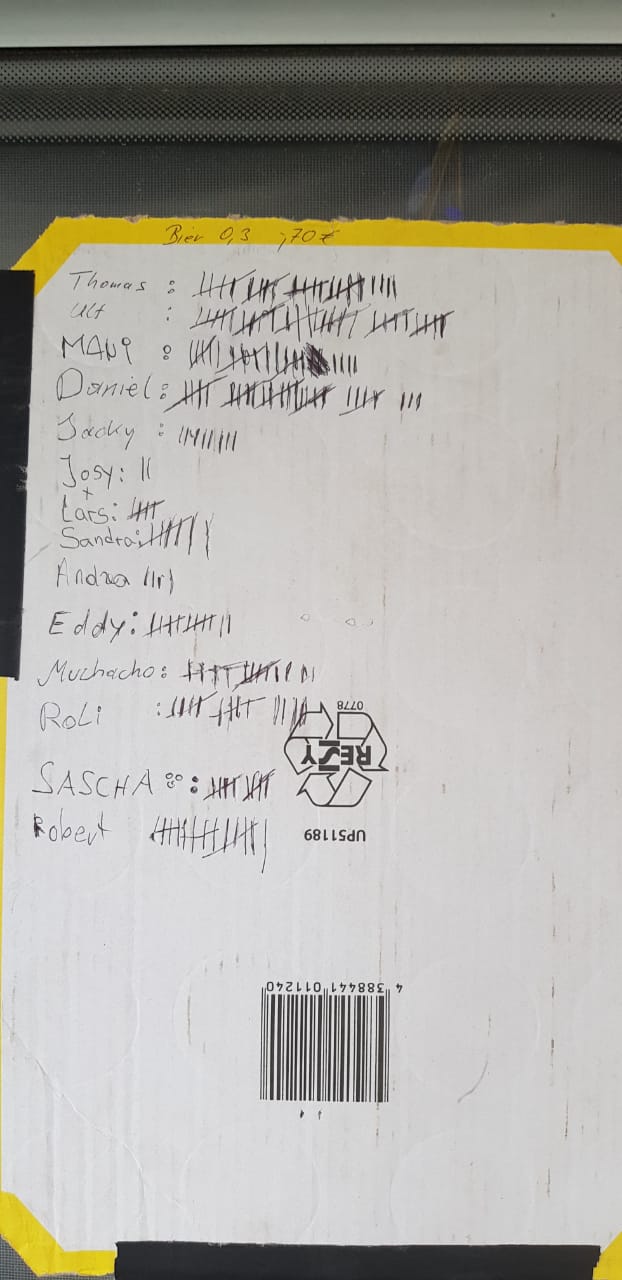 Bier 0,3 ,70 €
Thomas :
Ulf :
MANI :
Daniel :
Jacky :
Josy : ||
+
Lars :
Sandra :
Andrea ||||
Eddy :
Muchacho :
Roli :
0778
RESY
SASCHA :
Robert
UPS1189
4 388441 011240